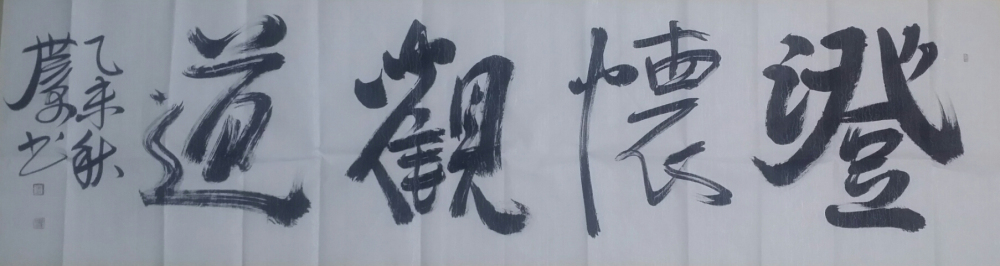 澄懷觀道
乙未秋
書